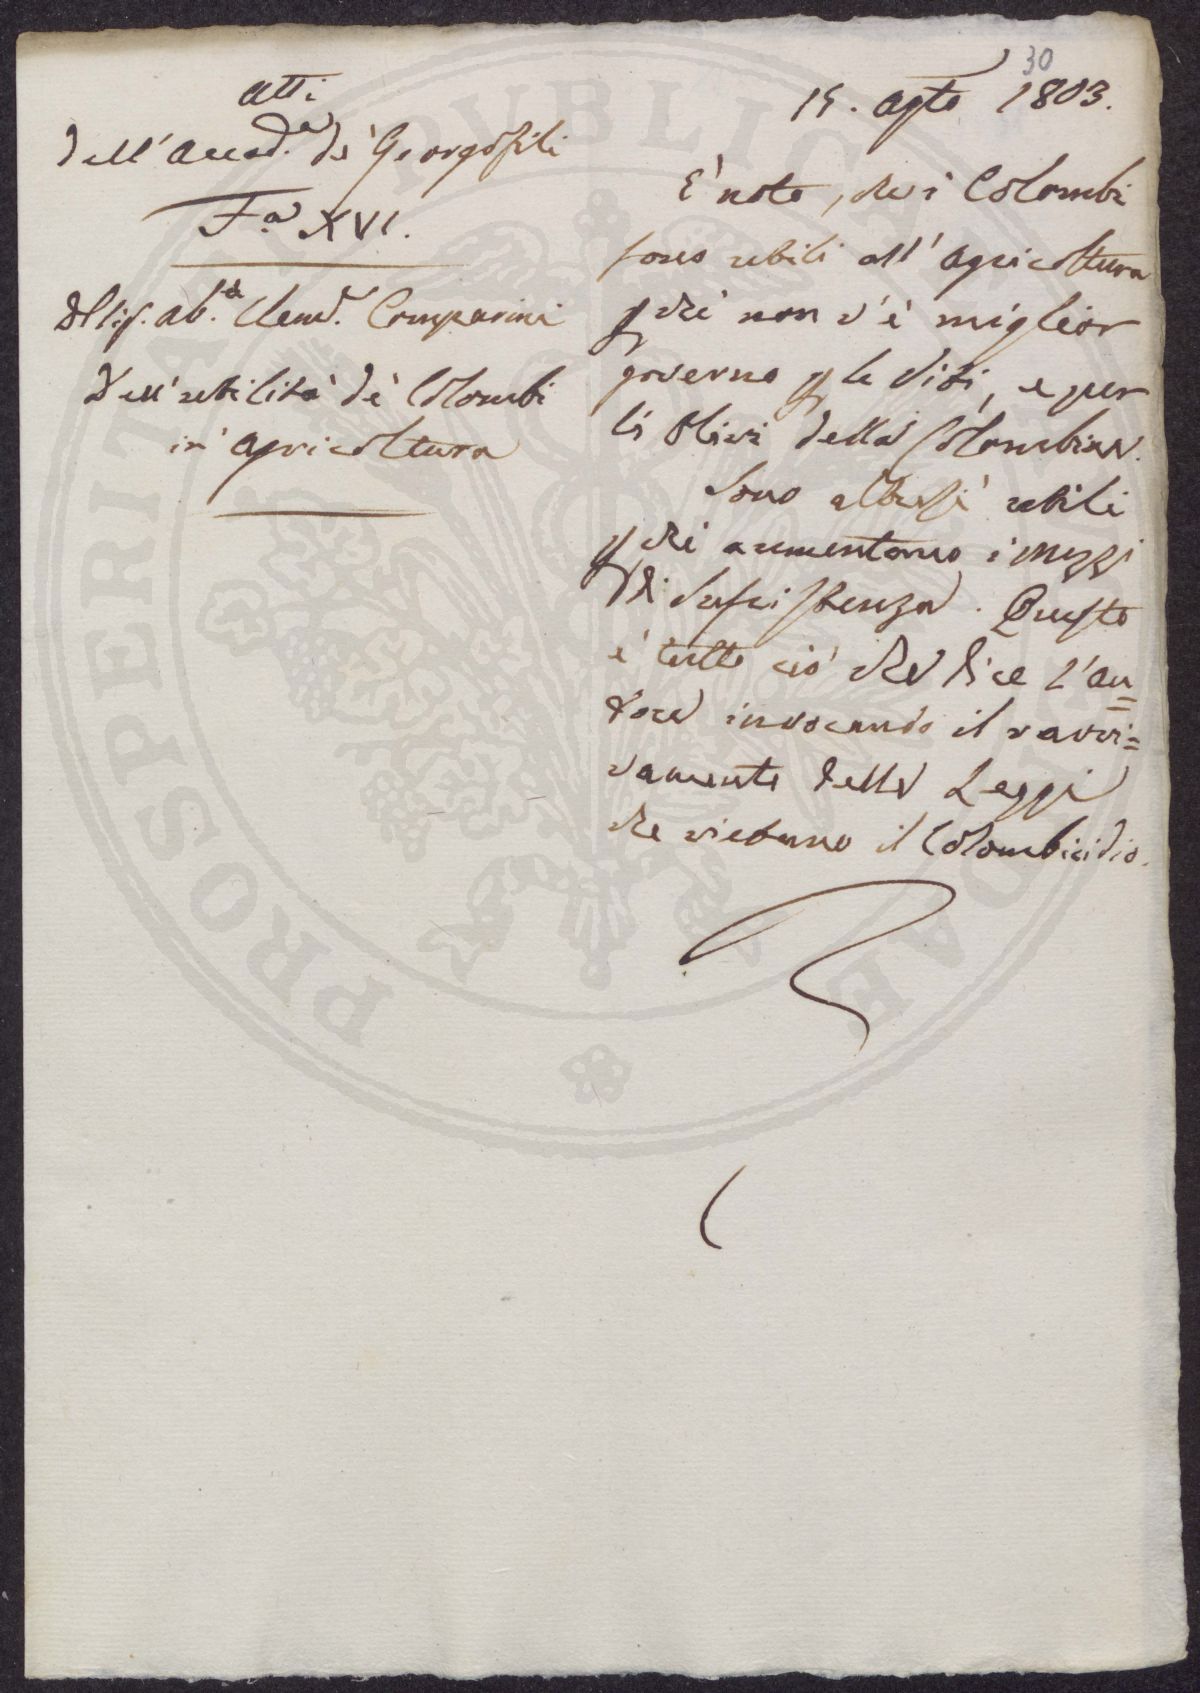 30
Atti
dell'Accad.a de' Georgofili
F.a XVI.
Del Sig. Ab.e Clem.e Comparini
Dell'utilità de' Colombi
in agricoltura
15. Agto 1803.
E' noto, che i Colombi
sono utili all'agricoltura
p chè non v'è miglior
governo p le Viti, e per
li Olivi della Colombina.
Sono altresì utili
p chè aumentano i mezzi
di sussistenza. Questo
è tutto ciò che dice l'Au=
tore invocando il ravvi=
vamento delle Leggi
che vietano il Colombicidio.
PROSPERITATI PUBLICAE